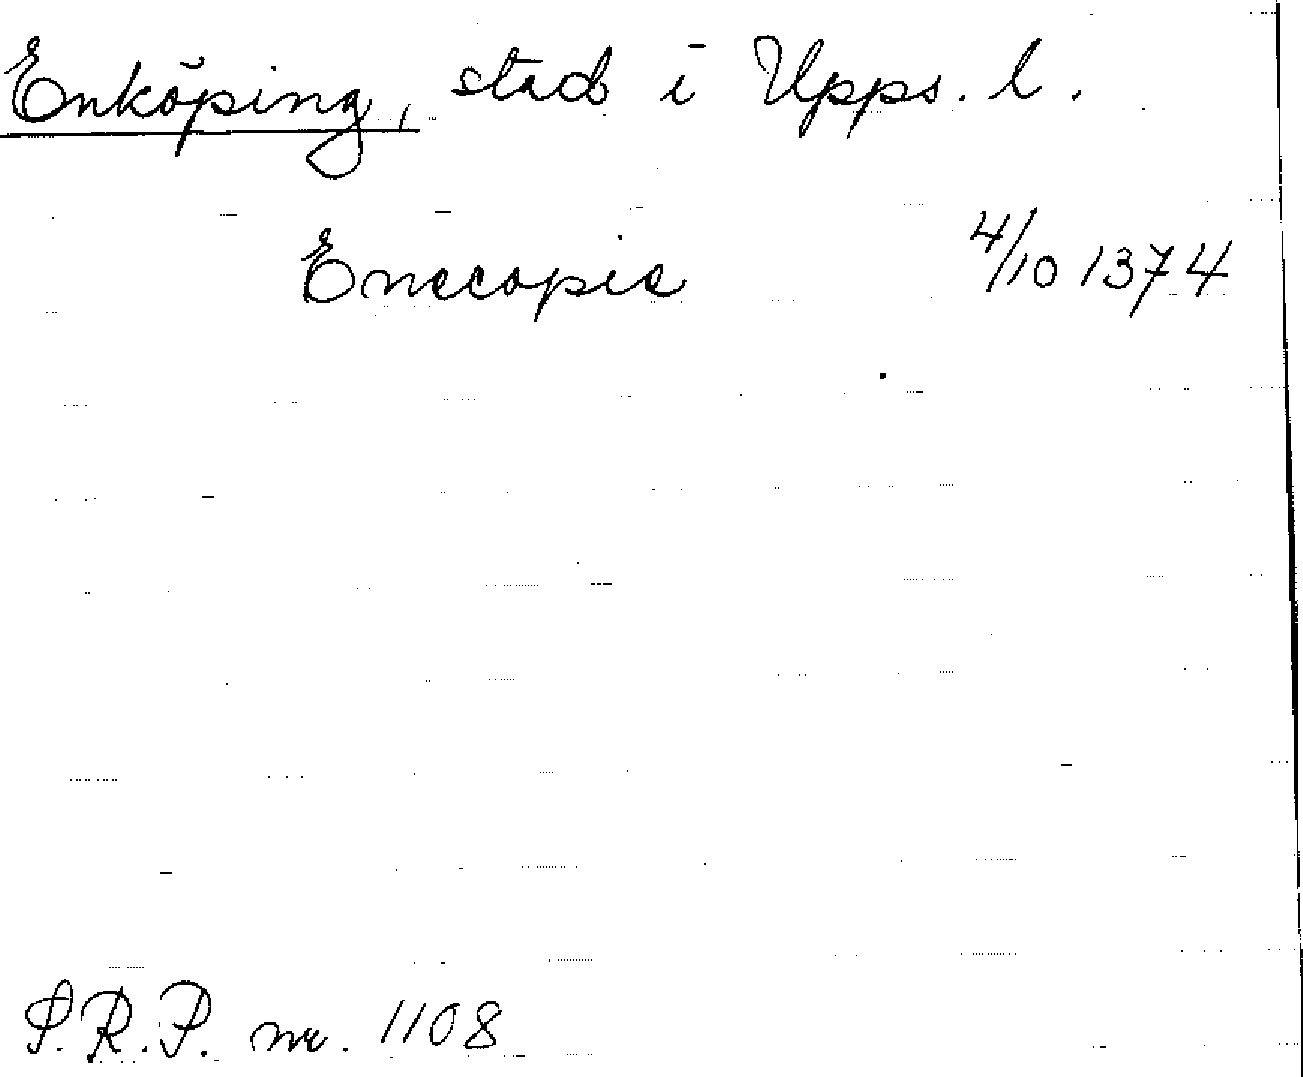 Enköping, stad i Upps. l.
Enecopie 4/10 1374
S.R.P. nr. 1108